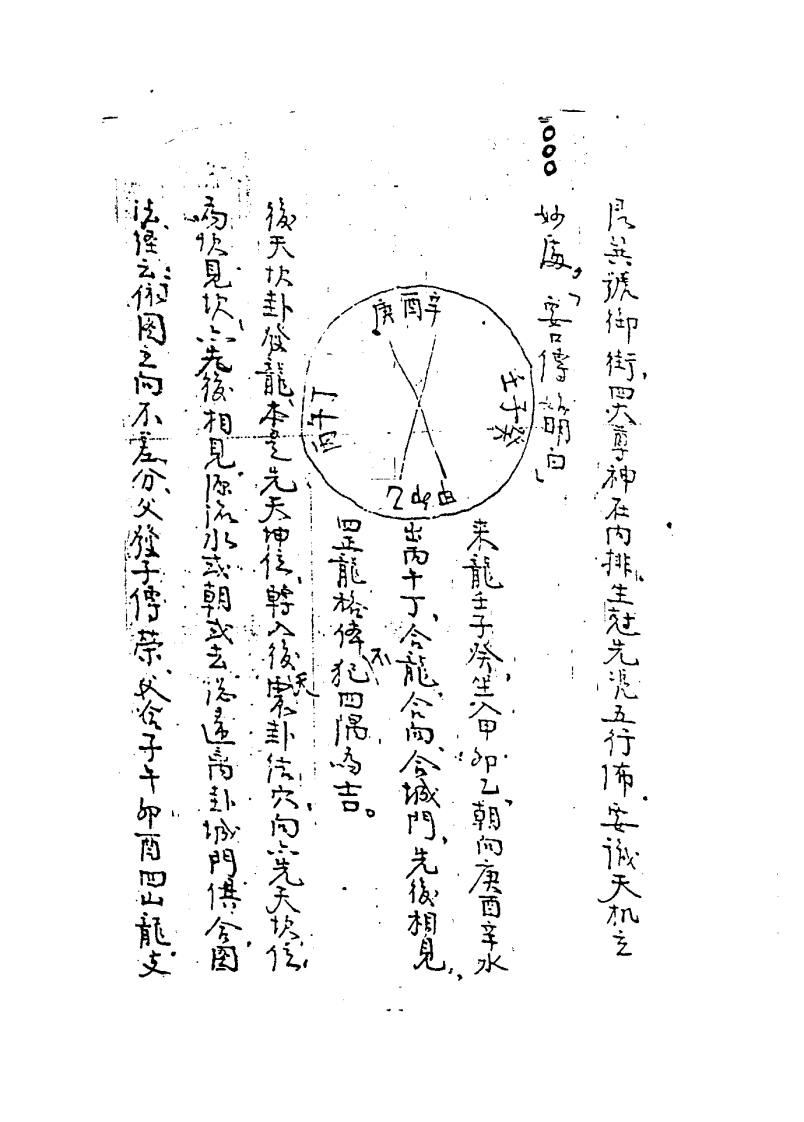 是英號御街、四大尊神在內排、生尅先凭五行佈、要識天机玄
妙處、要口傳說明白、
庚酉辛
壬子癸
丁午丙
乙卯甲
來龍壬子癸、坐入甲卯乙、朝向庚酉辛水
出丙午丁、合龍、合向、合城門、先後相見、
四正龍格俸、不犯四隅為吉。
後天坎卦發龍、本是先天坤位、轉入後天震卦結穴、向六先天坎位、
為坎見坎、六先後相見、源流水或朝或去、總是離卦城門、俱合圖
法、經云、依圖立向不差分、父發子傳榮、父合子午卯酉四山龍、支